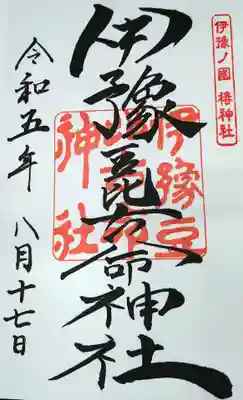 伊豫ノ國 椿神社
伊豫豆比古命神社
伊豫豆
神社
令和五年 八月十七日